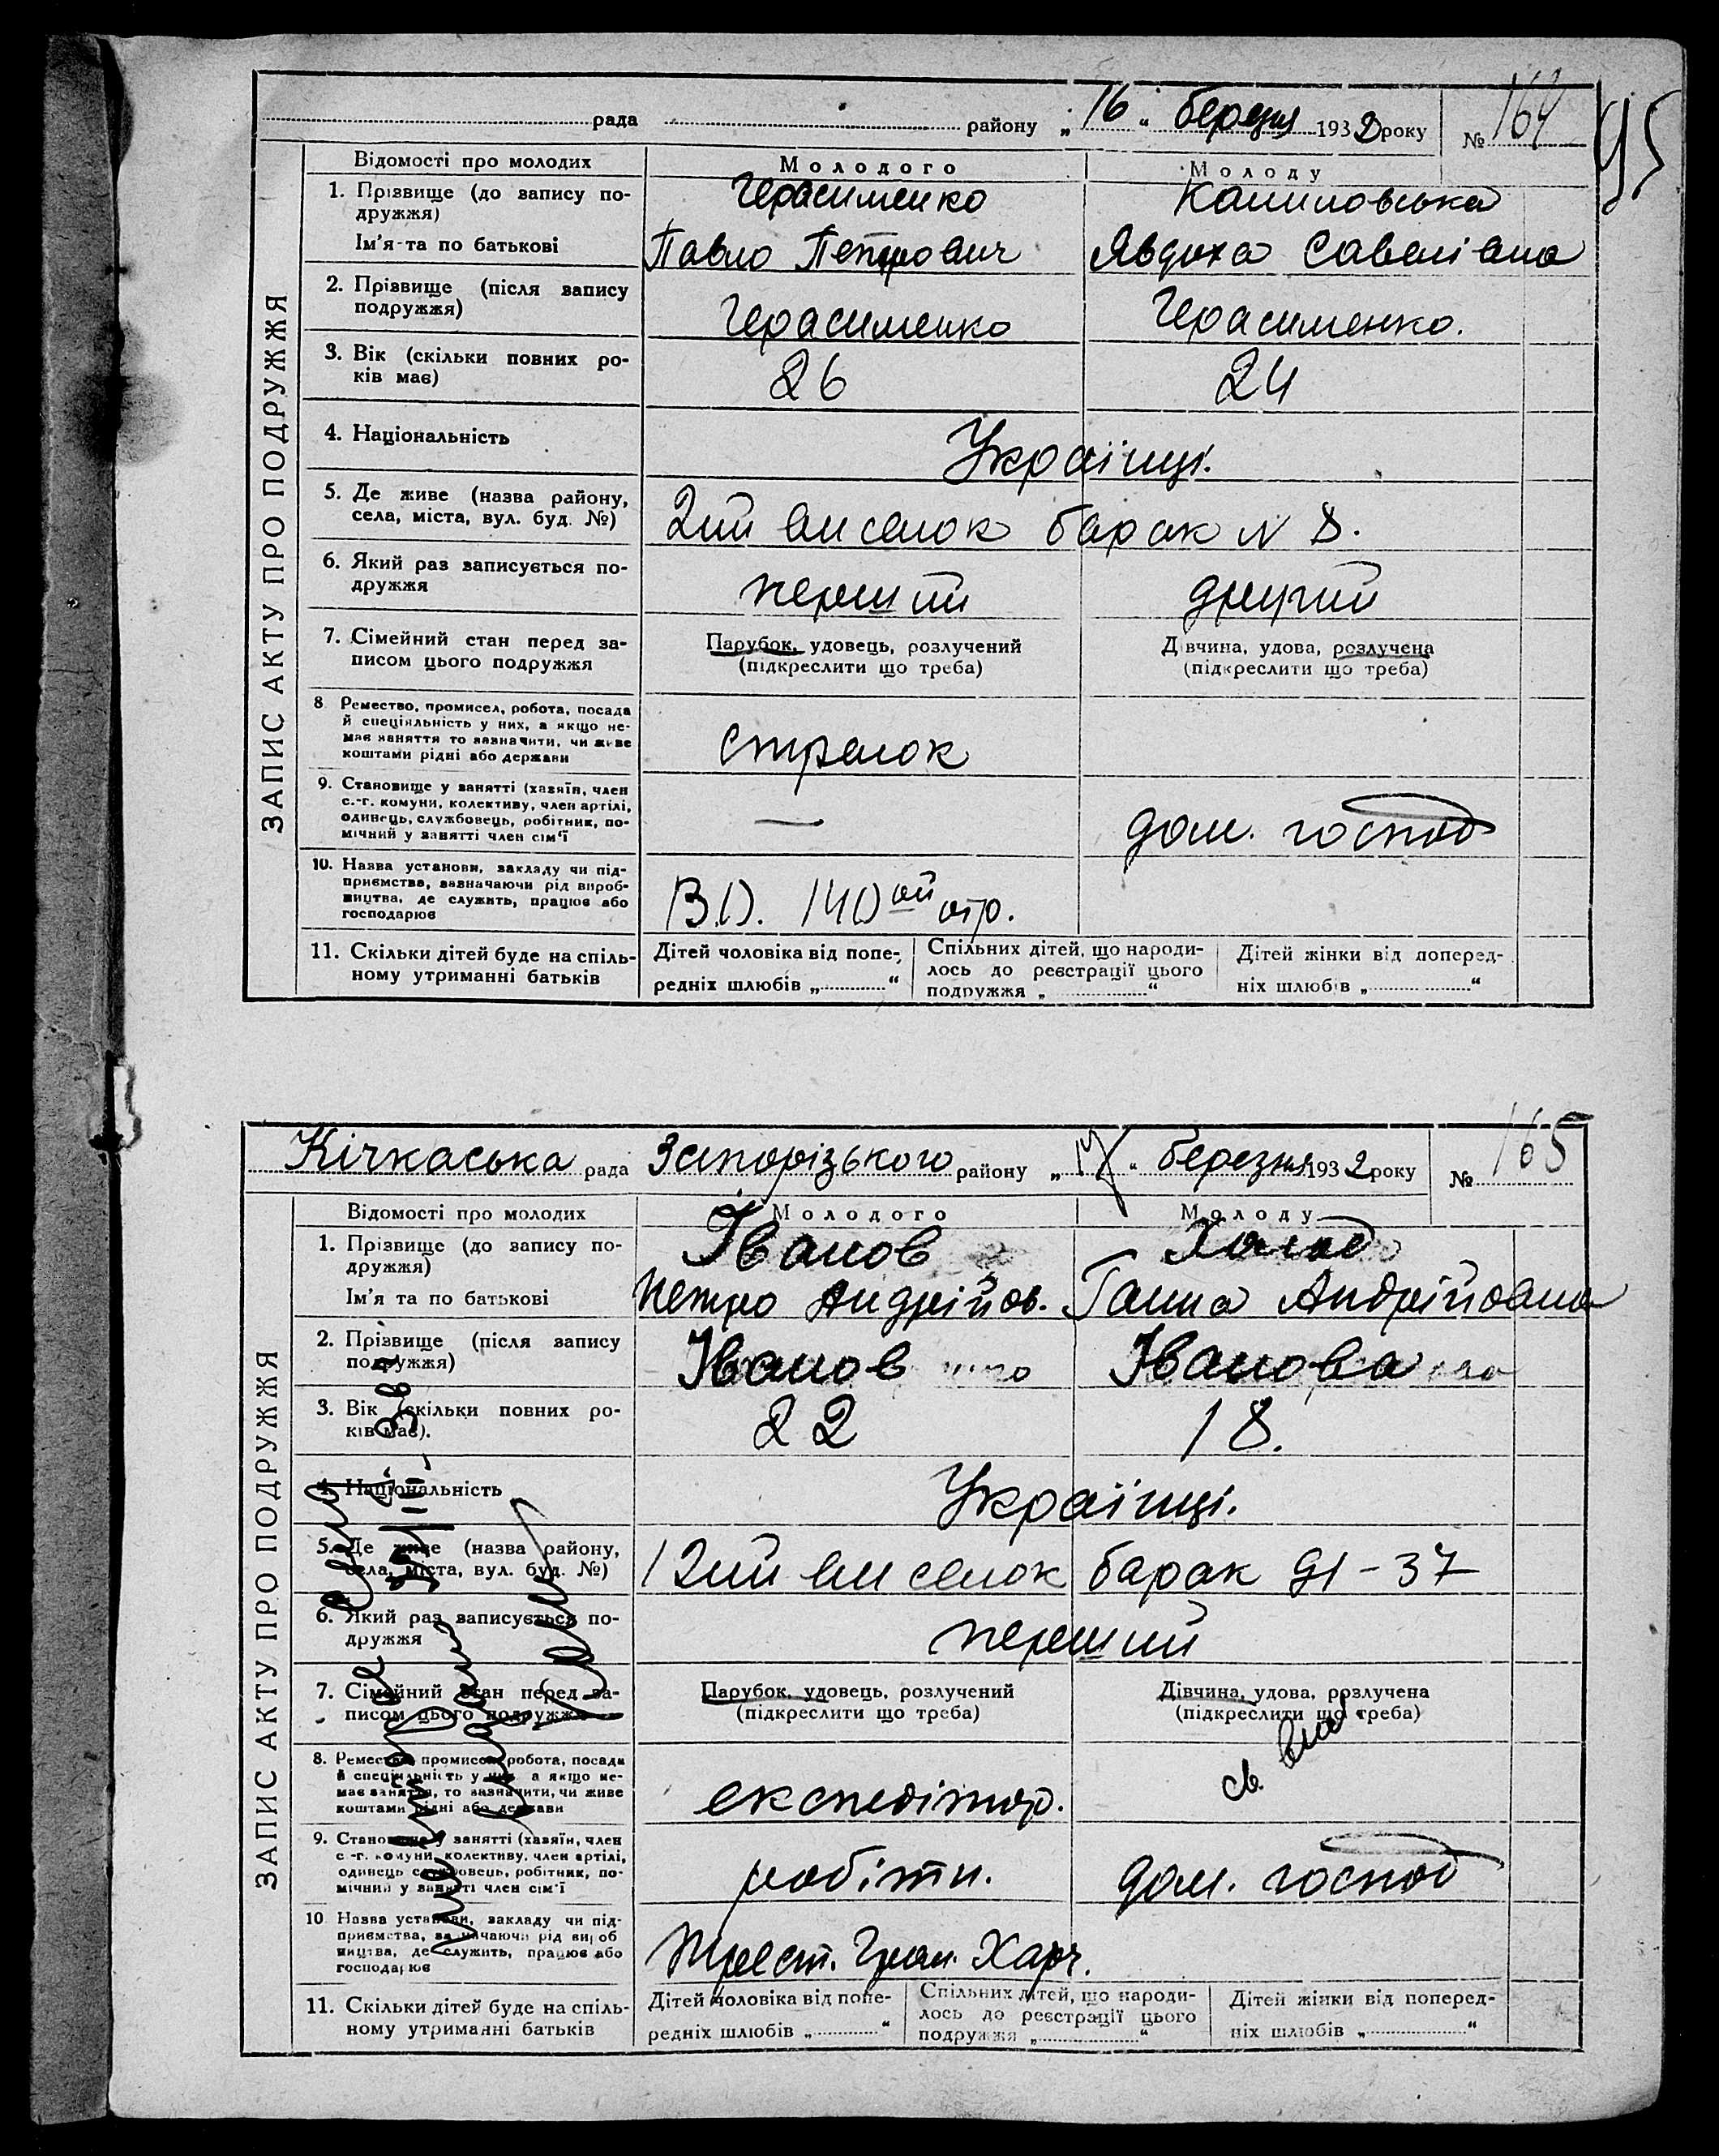 рада району „16“ березня 1932 року № 164
95
ЗАПИС АКТУ ПРО ПОДРУЖЖЯ
Відомості про молодих Молодого Молоду
1. Прізвище (до запису по-
дружжя)
Герасименко Калиновська
Ім'я та по батькові Павло Петрович Явдоха Савелівна
2. Прізвище (після запису
подружжя)
Герасименко Герасименко.
3. Вік (скільки повних ро-
ків має)
26 24
4. Національність Українці.
5. Де живе (назва району,
села, міста, вул. буд. №)
2ий виселок барак N 8.
6. Який раз записується по-
дружжя
перший другий
7. Сімейний стан перед за-
писом цього подружжя
Парубок, удовець, розлучений
(підкреслити що треба)
Дівчина, удова, розлучена
(підкреслити що треба)
8 Ремество, промисел, робота, посада
й спеціяльність у них, а якщо не-
має заняття то зазначити, чи живе
коштами рідні або держави
стрелок
9. Становище у занятті (хазяїн, член
с.-г. комуни, колективу, член артілі,
одинець, службовець, робітник, по-
мічний у занятті член сім'ї
— дом. господ
10. Назва установи, закладу чи під-
приємства, зазначаючи рід вироб-
ництва, де служить, працює або
господарює
В.О. 140ой отр.
11. Скільки дітей буде на спіль-
ному утриманні батьків
Дітей чоловіка від попе-
редніх шлюбів „ “
Спільних дітей, що народи-
лось до реєстрації цього
подружжя „ “
Дітей жінки від поперед-
ніх шлюбів „ “
Кічкаська рада Запорізького району „17“ березня 1932 року № 165
ЗАПИС АКТУ ПРО ПОДРУЖЖЯ
Відомості про молодих Молодого Молоду
1. Прізвище (до запису по-
дружжя)
Іванов
Ім'я та по батькові Петро Андрійов. Ганна Андрійовна
2. Прізвище (після запису
подружжя)
Іванов Іванова
3. Вік (скільки повних ро-
ків має).
22 18.
4. Національність Українці.
5. Де живе (назва району,
села, міста, вул. буд. №)
12ий виселок барак 91-37
6. Який раз записується по-
дружжя
перший
7. Сімейний стан перед за-
писом цього подружжя
Парубок, удовець, розлучений
(підкреслити що треба)
Дівчина, удова, розлучена
(підкреслити що треба)
8. Ремество, промисел, робота, посада
й спеціяльність у них, а якщо не-
має заняття, то зазначити, чи живе
коштами рідні або держави
експедітор.
9. Становище у занятті (хазяїн, член
с.-г. комуни, колективу, член артілі,
одинець службовець, робітник, по-
мічний у занятті член сім'ї
робітн. дом. господ
10 Назва установи, закладу чи під-
приємства, зазначаючи рід вироб
ництва, де служить, працює або
господарює
Трест. Гром. Харч.
11. Скільки дітей буде на спіль-
ному утриманні батьків
Дітей чоловіка від попе-
редніх шлюбів „ “
Спільних дітей, що народи-
лось до реєстрації цього
подружжя „ “
Дітей жінки від поперед-
ніх шлюбів „ “